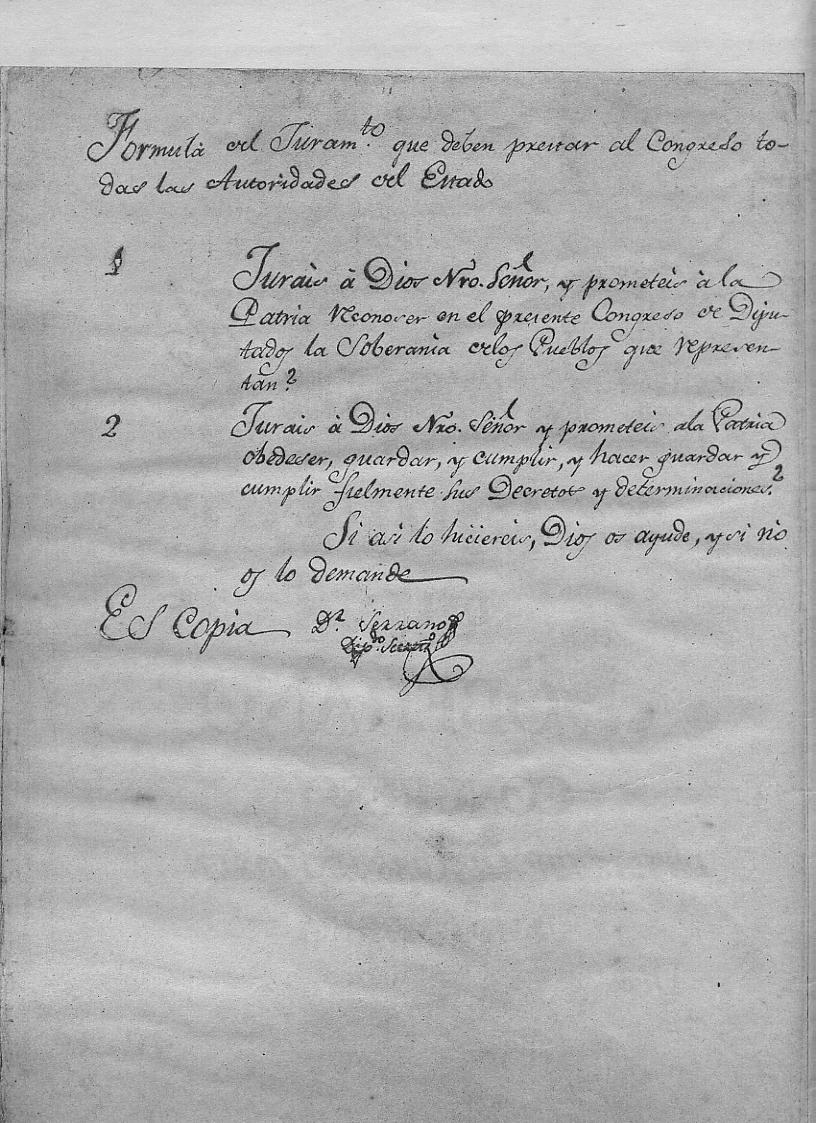 Formula del Juram.to que deben prestar al Congreso to-
das las Autoridades del Estado
1 Jurais à Dios Nro. Señor, y prometeis à la
Patria reconoser en el presente Congreso de Dipu-
tados la Soberania delos Pueblos que represen-
tan?
2 Jurais à Dios Nro. Señor y prometeis ala Patria
obedeser, guardar, y cumplir, y hacer guardar y
cumplir fielmente sus Decretos y determinaciones?
Si asi lo hiciereis, Dios os ayude, y si no
os lo demande
Es Copia Dr. Serrano
Dip.do Secret.o